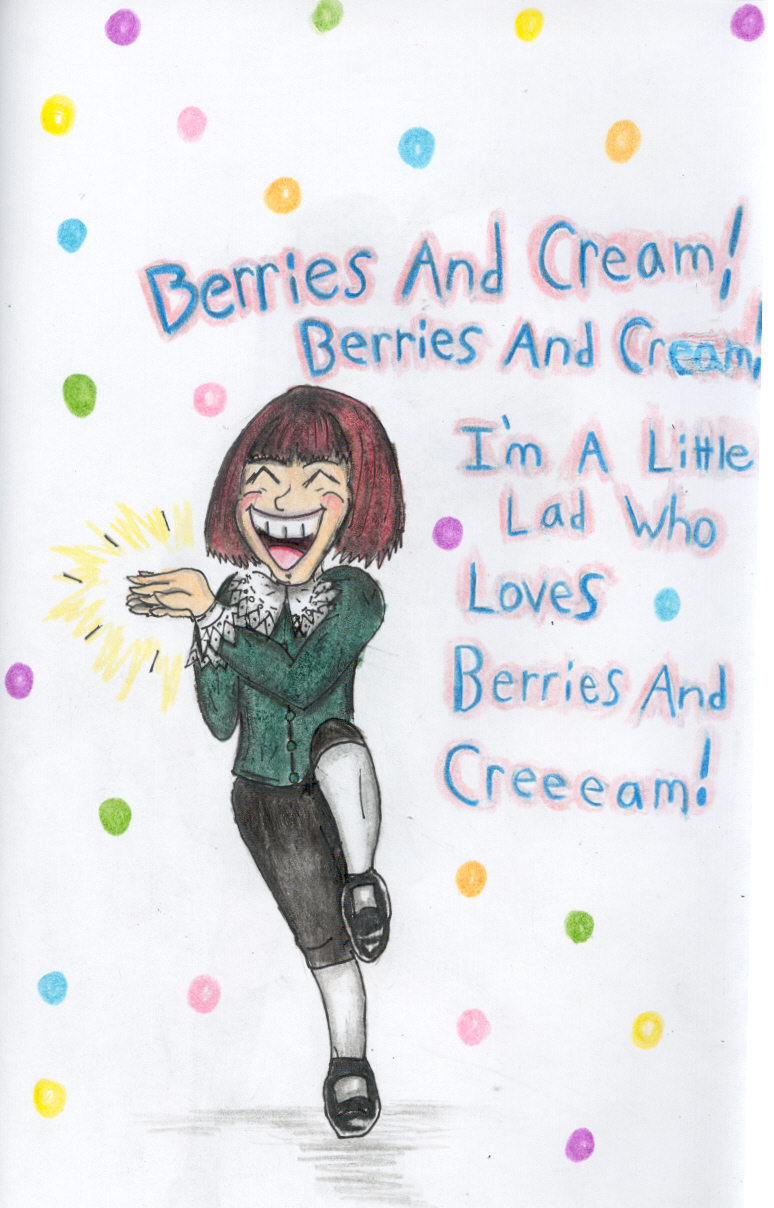 Berries And Cream!
Berries And Cream!
I'm A Little
Lad Who
Loves
Berries And
Creeeam!